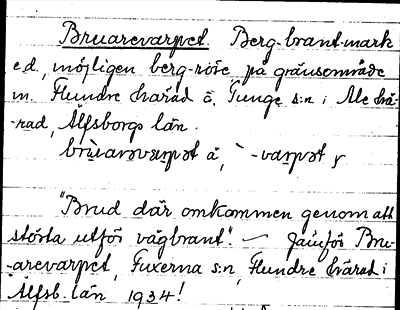 Bruarevarpet Berg-brant-mark
e.d., möjligen berg-röse på gränsområde
m. Flundre härad å Tunge s:n i Ale hä-
-rad, Älfsborgs län.
"Brud där omkommen genom att
störta utför vägbrant". — Jämför Bru-
-arevarpet, Fuxerna s:n, Flundre härad i
Älfsb. län 1934!